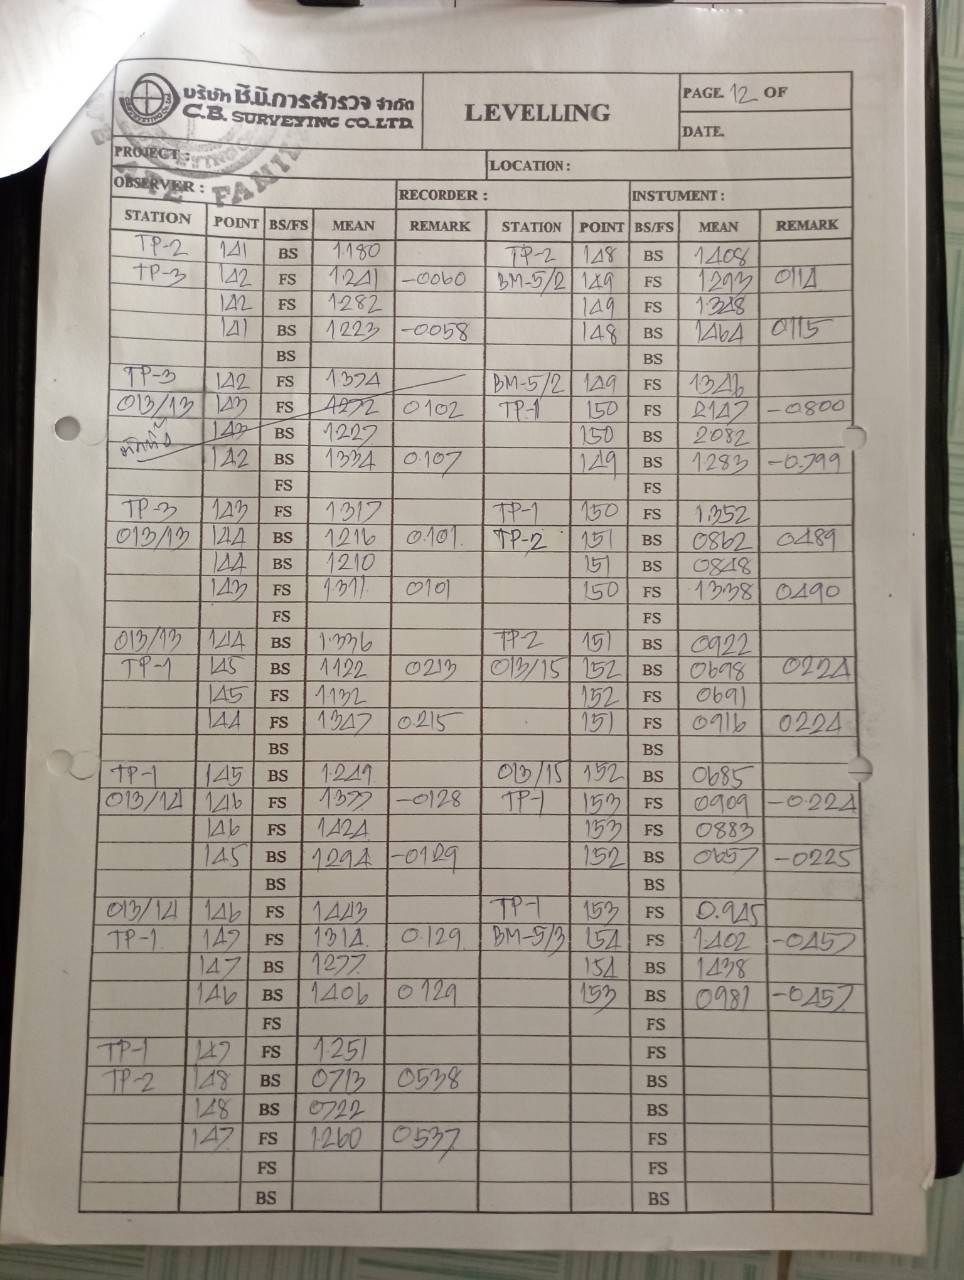 บริษัท ซี.บี.การสำรวจ จำกัด
C.B. SURVEYING CO.,LTD.
LEVELLING
PAGE. 12 OF
DATE.
PROJECT :
LOCATION :
OBSERVER :
RECORDER :
INSTUMENT :
STATION POINT BS/FS MEAN REMARK STATION POINT BS/FS MEAN REMARK
TP-2 141 BS 1.180 TP-2 148 BS 1408
TP-3 142 FS 1.241 -0060 BM-5/2 149 FS 1293 0114
142 FS 1.282 149 FS 1.348
141 BS 1223 -0058 148 BS 1464 0115
BS BS
TP-3 142 FS 1374 BM-5/2 149 FS 1346
013/13 143 FS 1272 0102 TP-1 150 FS 2147 -0.800
143 BS 1227 150 BS 2082
142 BS 1334 0.107 149 BS 1283 -0.799
FS FS
TP-3 143 FS 1.317 TP-1 150 FS 1.352
013/13 144 BS 1216 0.101 TP-2 151 BS 0862 0489
144 BS 1210 151 BS 0848
143 FS 1.311 0101 150 FS 1338 0490
FS FS
013/13 144 BS 1.336 TP-2 151 BS 0922
TP-1 145 BS 1122 0213 013/15 152 BS 0698 0224
145 FS 1132 152 FS 0691
144 FS 1347 0215 151 FS 0916 0224
BS BS
TP-1 145 BS 1.249 013/15 152 BS 0685
013/14 146 FS 1377 -0128 TP-1 153 FS 0909 -0.224
146 FS 1424 153 FS 0883
145 BS 1294 -0129 152 BS 0657 -0225
BS BS
013/14 146 FS 1443 TP-1 153 FS 0.945
TP-1 147 FS 1314 0.129 BM-5/3 154 FS 1402 -0457
147 BS 1277 154 BS 1438
146 BS 1406 0129 153 BS 0981 -0457
FS FS
TP-1 147 FS 1.251 FS
TP-2 148 BS 0713 0538 BS
148 BS 0722 BS
147 FS 1.260 0537 FS
FS FS
BS BS